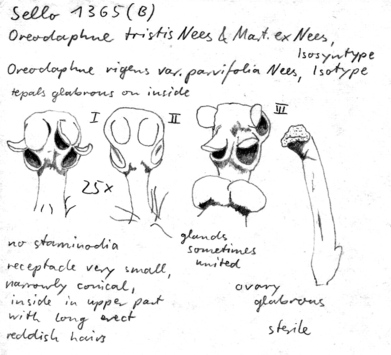 Sello 1365 (B)
Oreodaphne tristis Nees & Mart. ex Nees,
Isosyntype
Oreodaphne rigens var. parvifolia Nees, Isotype
tepals glabrous on inside
I II III
25x
glands
sometimes
united
no staminodia
receptacle very small,
narrowly conical,
inside in upper part
with long erect
reddish hairs
ovary
glabrous
sterile